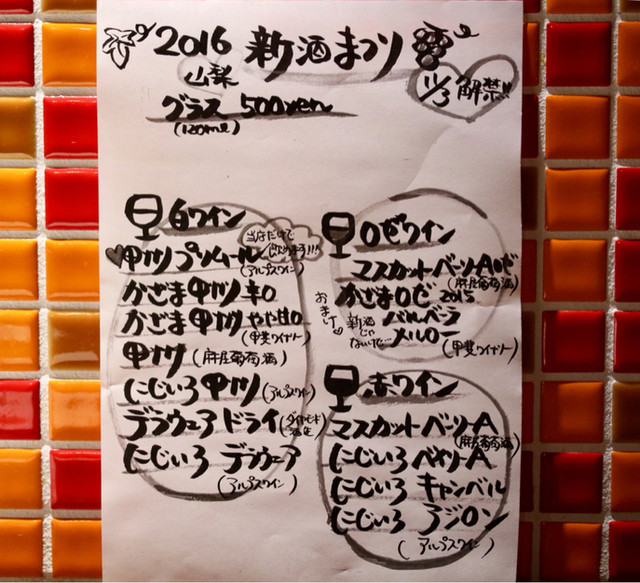 2016 新酒まつり
山梨
11/3 解禁!!
グラス 500yen
(120ml)
白ワイン
当店だけで
飲めまする!!!
甲州 プリムール
(アルプスワイン)
かざま甲州 辛口
かざま甲州 やや甘口
(甲斐ワイナリー)
甲州 (麻屋葡萄酒)
にじいろ 甲州 (アルプスワイン)
デラウェア ドライ (ダイヤモンド酒造)
にじいろ デラウェア
(アルプスワイン)
ロゼワイン
マスカットベーリーAロゼ
(麻屋葡萄酒)
かざまロゼ 2015
おまけ
新酒じゃないで…
バルベーラ
メルロー
(甲斐ワイナリー)
赤ワイン
マスカットベーリーA
(麻屋葡萄酒)
にじいろ ベイリーA
にじいろ キャンベル
にじいろ アジロン
(アルプスワイン)